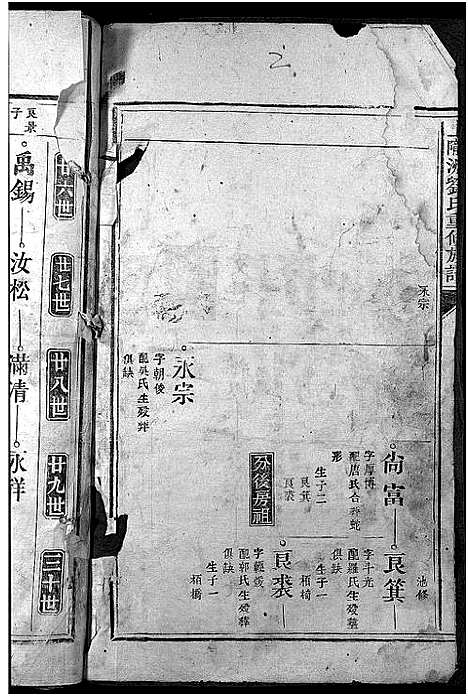 氏重修族譜
永宗
尚富
字厚博
配唐氏合葬蛇
形
生子二
良箕
良裘
良箕
字斗光
配羅氏生歿葬
俱缺
生子一
栢橋
分後房祖
良裘
字輕後
配郭氏生歿葬
俱缺
生子一
栢橋
永宗
字朝後
配吳氏生歿葬
俱缺
2
廿六世
廿七世
廿八世
廿九世
三十世
良景
子
禹錫
汝松
滿清
永祥